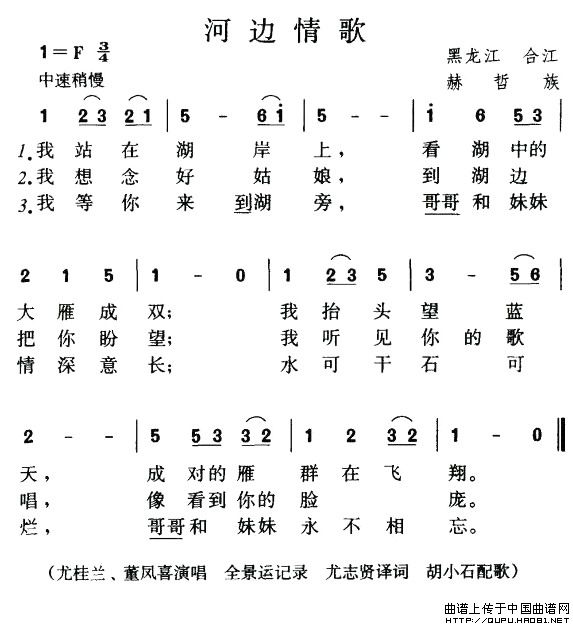 河边情歌
1=F 3/4
黑龙江 合江
中速稍慢
赫哲族
1 23 21 | 5 - 6i | 5 - - | i 6 53 |
1.我站在湖岸上，看湖中的
2.我想念好姑娘，到湖边
3.我等你来到湖旁，哥哥和妹妹
2 1 5 | 1 - 0 | 1 23 5 | 3 - 56 |
大雁成双；我抬头望蓝
把你盼望；我听见你的歌
情深意长；水可干石可
2 - - | 5 53 32 | 1 2 32 | 1 - 0 ‖
天，成对的雁群在飞翔。
唱，像看到你的脸庞。
烂，哥哥和妹妹永不相忘。
（尤桂兰、董凤喜演唱 全景运记录 尤志贤译词 胡小石配歌）
曲谱上传于中国曲谱网
HTTP://QUPU.HAO81.NET